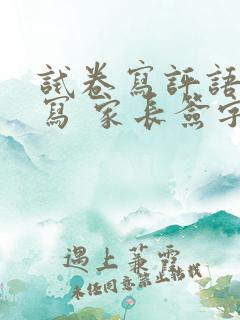 試卷寫評語
寫 家長簽字
遇上蒹霏
未經同意禁止轉載